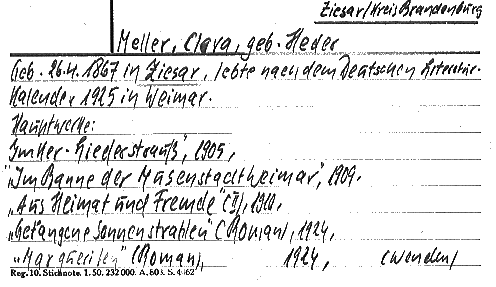 Ziesar/Kreis Brandenburg
Meller, Clara, geb. Heder
Geb. 26.4.1867 in Ziesar, lebte nach dem Deutschen Literatur-
Kalender 1925 in Weimar.
Hauptwerke:
Immer-Liederstrauß", 1905,
"Im Banne der Musenstadt Weimar", 1909.
"Aus Heimat und Fremde" (II), 1910,
"Gefangene Sonnenstrahlen" (Roman), 1924,
"Margueriten" (Roman), 1924, (wenden)
Reg. 10. Stichnote. 1. 50. 232 000. A. 803. S. 4162